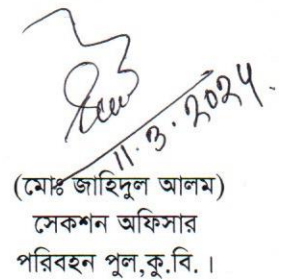 11.3.2024.
(মোঃ জাহিদুল আলম)
সেকশন অফিসার
পরিবহন পুল,কু.বি.।